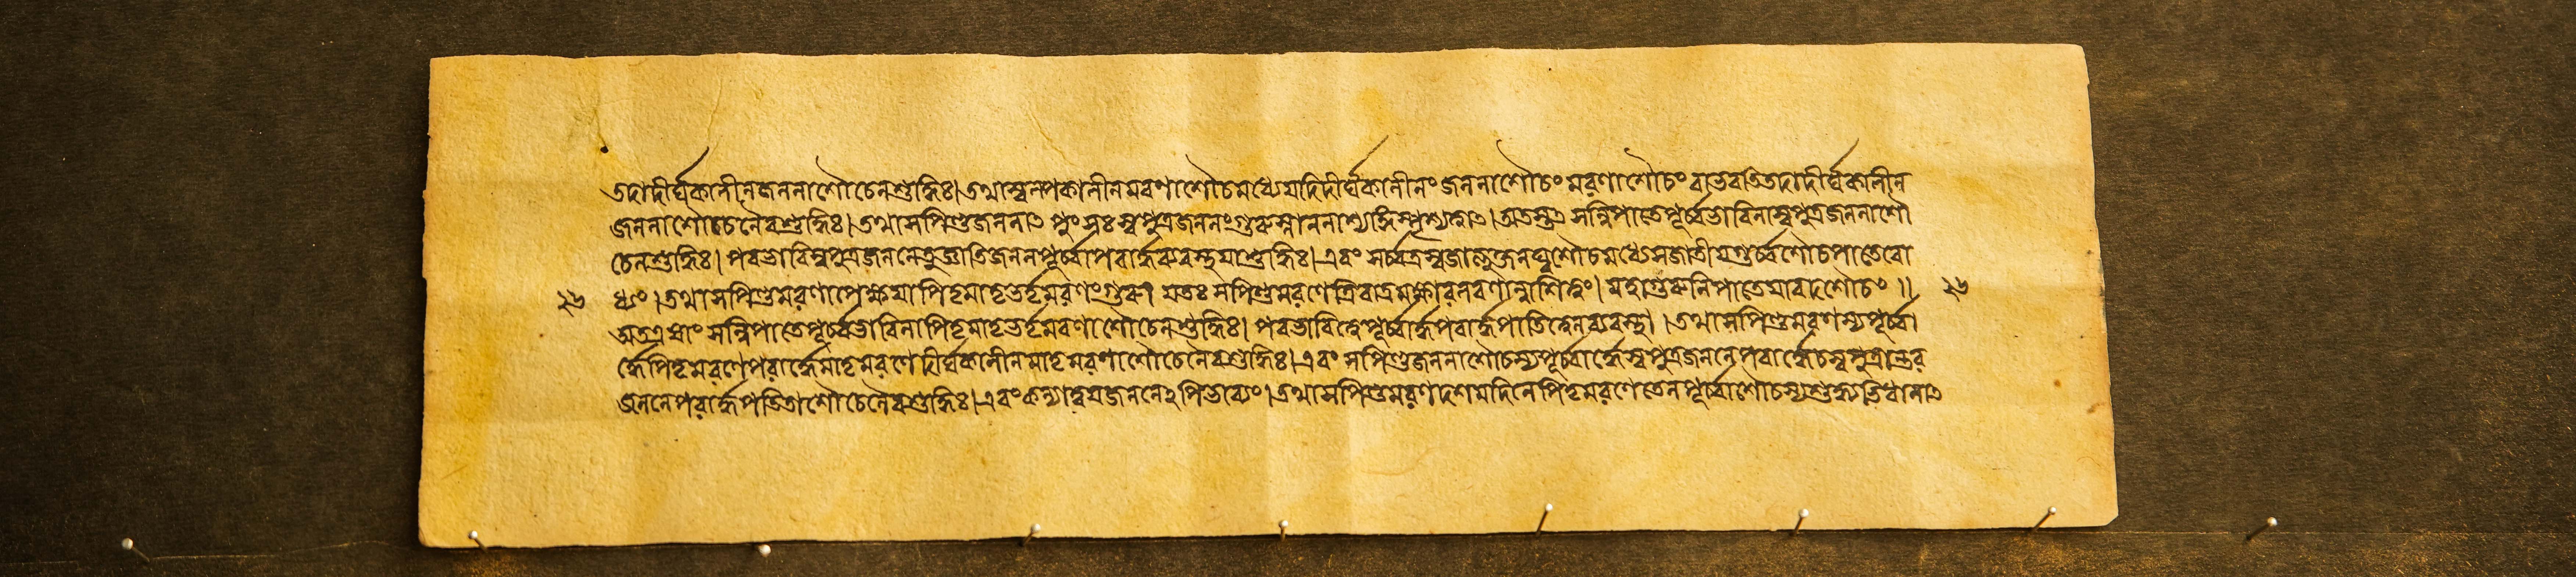 তদাদীর্ঘকালীনজননাশৌচেনশুদ্ধিঃ। তথাস্বল্পকালীনমরণাশৌচমধ্যেযদিদীর্ঘকালীনং জননাশৌচং মরণাশৌচং বাভবতিতদাদীর্ঘকালীন
জননাশৌচেনৈবশুদ্ধিঃ। তথাসপিণ্ডজননাৎ পুংসঃ স্বপুত্রজননং গুরু সন্নিপাতেপূর্ব্বভাবিনাস্বপুত্রজননাশৌ
চেনশুদ্ধিঃ। পরভাবিস্বপুত্রজননেতুজ্ঞাতিজননপূর্ব্বাপরার্দ্ধ শুদ্ধিঃ। এবং
২৬ ধ্যং। তথাসপিণ্ডমরণাপেক্ষয়াপিতৃমাতৃভর্তৃমরণংগুরু। যতঃ সপিণ্ডমরণেত্রিরাত্রমক্ষারলবণান্নাশিত্বং। মহাগুরুনিপাতেযাবদশৌচং॥ ২৬
অতএষাং সন্নিপাতেপূর্ব্বভাবিনাপিতৃমাতৃভর্তৃমরণাশৌচেনশুদ্ধিঃ। পরভাবিত্বেপূর্ব্বার্দ্ধপরার্দ্ধপাতিত্বেনব্যবস্থা। তথাসপিণ্ডমরণস্যপূর্ব্বা
র্দ্ধেপিতৃমরণেপরার্দ্ধেমাতৃমরণেদীর্ঘকালীনমাতৃমরণাশৌচেনৈবশুদ্ধিঃ। এবং সপিণ্ডজননাশৌচস্যপূর্ব্বার্দ্ধেস্বপুত্রজননেপরার্দ্ধেচস্বপুত্রান্তর
জননেপরার্দ্ধপতিতাশৌচেনৈবশুদ্ধিঃ। এবংকন্যাদ্বয়জননেঽপিভাব্যং। তথাসপিণ্ডমরণদশমদিনেপিতৃমরণেতেনপূর্ব্বাশৌচস্য